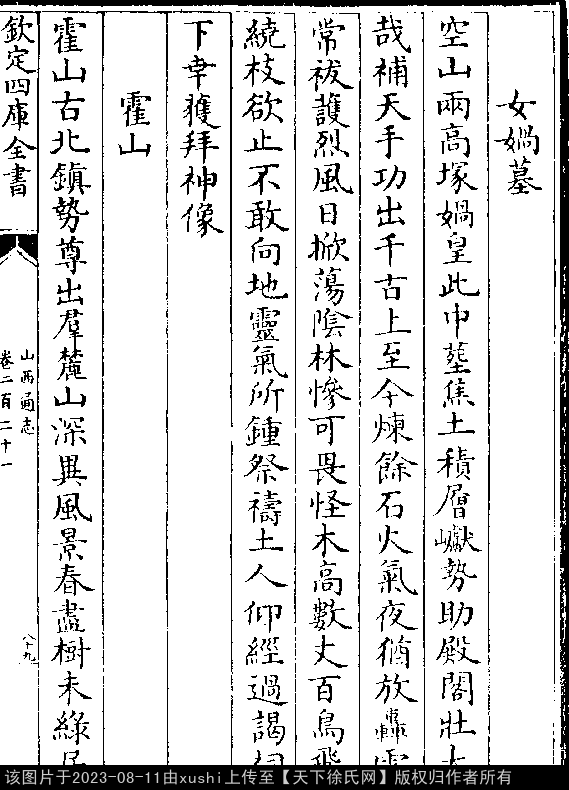 女媧墓
空山兩高塚媧皇此中塟焦土積層巘勢助殿閣壯
哉補天手功出千古上至今煉餘石火氣夜猶放轟
常祓護烈風日掀蕩陰林慘可畏怪木高數丈百鳥飛
繞枝欲止不敢向地靈氣所鍾祭禱土人仰經過謁
下幸獲拜神像
霍山
霍山古北鎮勢尊出羣麓山深異風景春盡樹未綠
欽定四庫全書
山西通志
卷二百二十一
八十九
该图片于2023-08-11由xushi上传至【天下徐氏网】版权归作者所有